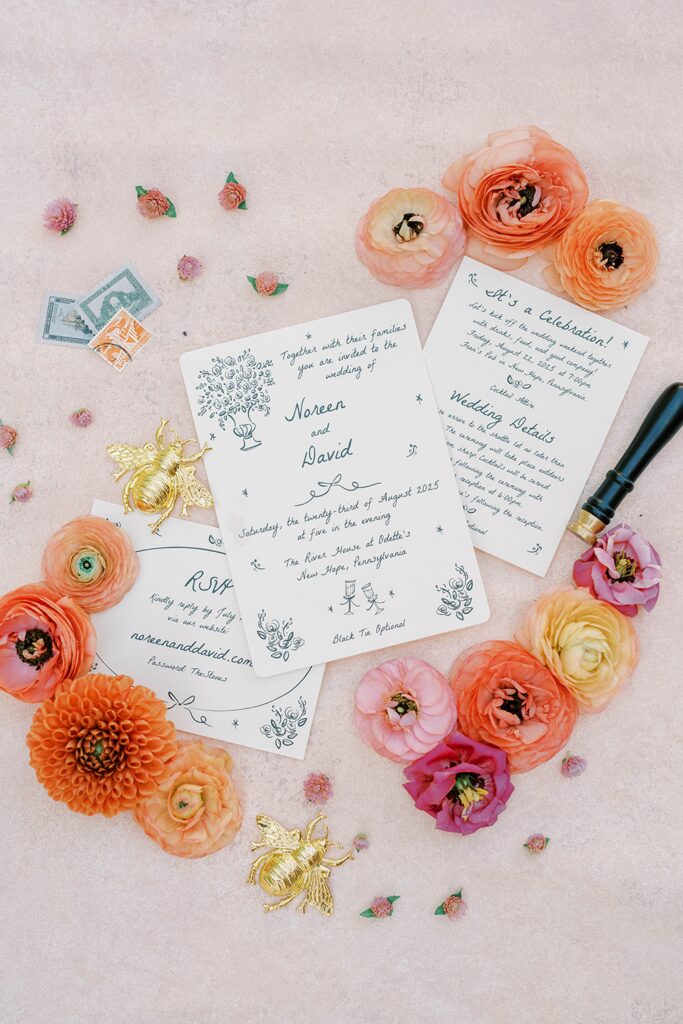 Together with their families
you are invited to the
wedding of
Noreen
and
David
Saturday, the twenty-third of August 2025
at five in the evening
The River House at Odette's
New Hope, Pennsylvania
Black Tie Optional
It's a Celebration!
Let's kick off the wedding weekend together
with drinks, food, and good company!
Friday, August 22, 2025 at 7:00pm
Fran's Pub in New Hope, Pennsylvania
Cocktail Attire
Wedding Details
arrive to the shuttle lot no later than
The ceremony will take place outdoors
sharp. Cocktails will be served
following the ceremony with
reception at 6:00pm.
's following the reception.
RSVP
Kindly reply by July
via our website:
noreenanddavid.com
Password: TheStones